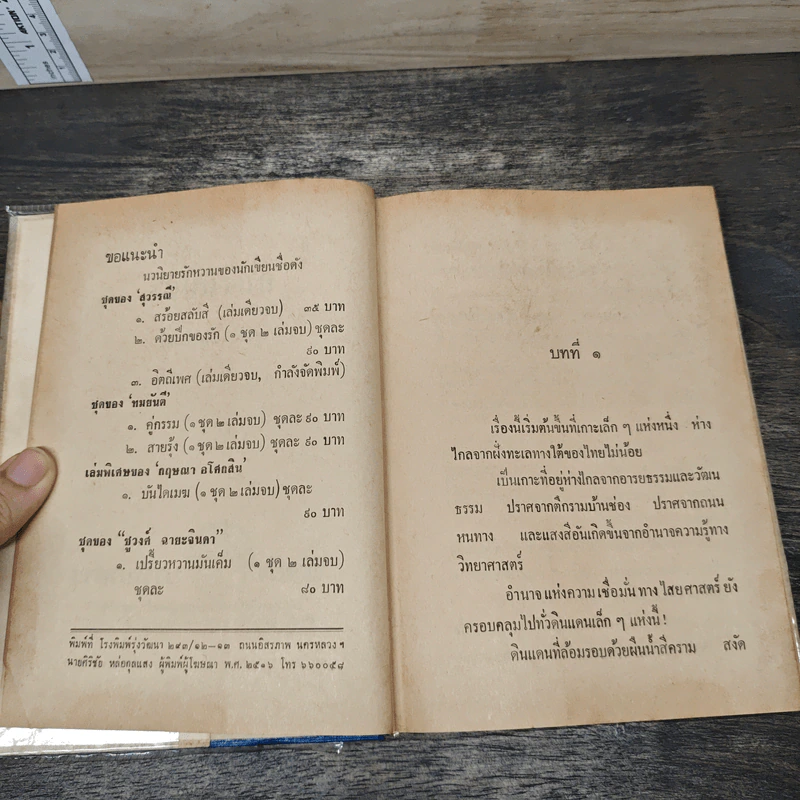 ขอแนะนำ
นวนิยายรักหวานของนักเขียนชื่อดัง
ชุดของ ‘สุวรรณี’
๑. สร้อยสลับสี (เล่มเดียวจบ) ๓๕ บาท
๒. ด้วยปีกของรัก (๑ ชุด ๒ เล่มจบ) ชุดละ
๙๐ บาท
๓. อิตถีเพศ (เล่มเดียวจบ, กำลังจัดพิมพ์)
ชุดของ ‘ทมยันตี’
๑. คู่กรรม (๑ ชุด ๒ เล่มจบ) ชุดละ ๙๐ บาท
๒. สายรุ้ง (๑ ชุด ๒ เล่มจบ) ชุดละ ๙๐ บาท
เล่มพิเศษของ ‘กฤษณา อโศกสิน’
๑. บันไดเมฆ (๑ ชุด ๒ เล่มจบ) ชุดละ
๙๐ บาท
ชุดของ “ชูวงศ์ ฉายะจินดา”
๑. เปรี้ยวหวานมันเค็ม (๑ ชุด ๒ เล่มจบ)
ชุดละ ๘๐ บาท
พิมพ์ที่ โรงพิมพ์รุ่งวัฒนา ๒๙๓/๑๒–๑๓ ถนนอิสรภาพ นครหลวง ฯ
นายศิริชัย หล่อกุลแสง ผู้พิมพ์ผู้โฆษณา พ.ศ. ๒๕๑๖ โทร ๖๖๐๐๕๘
บทที่ ๑
เรื่องนี้เริ่มต้นขึ้นที่เกาะเล็ก ๆ แห่งหนึ่ง ห่าง
ไกลจากฝั่งทะเลทางใต้ของไทยไม่น้อย
เป็นเกาะที่อยู่ห่างไกลจากอารยธรรมและวัฒน
ธรรม ปราศจากตึกรามบ้านช่อง ปราศจากถนน
หนทาง และแสงสีอันเกิดขึ้นจากอำนาจความรู้ทาง
วิทยาศาสตร์
อำนาจ แห่งความ เชื่อมั่น ทาง ไสยศาสตร์ ยัง
ครอบคลุมไปทั่วดินแดนเล็ก ๆ แห่งนี้ !
ดินแดนที่ล้อมรอบด้วยผืนน้ำสีคราม สงัด